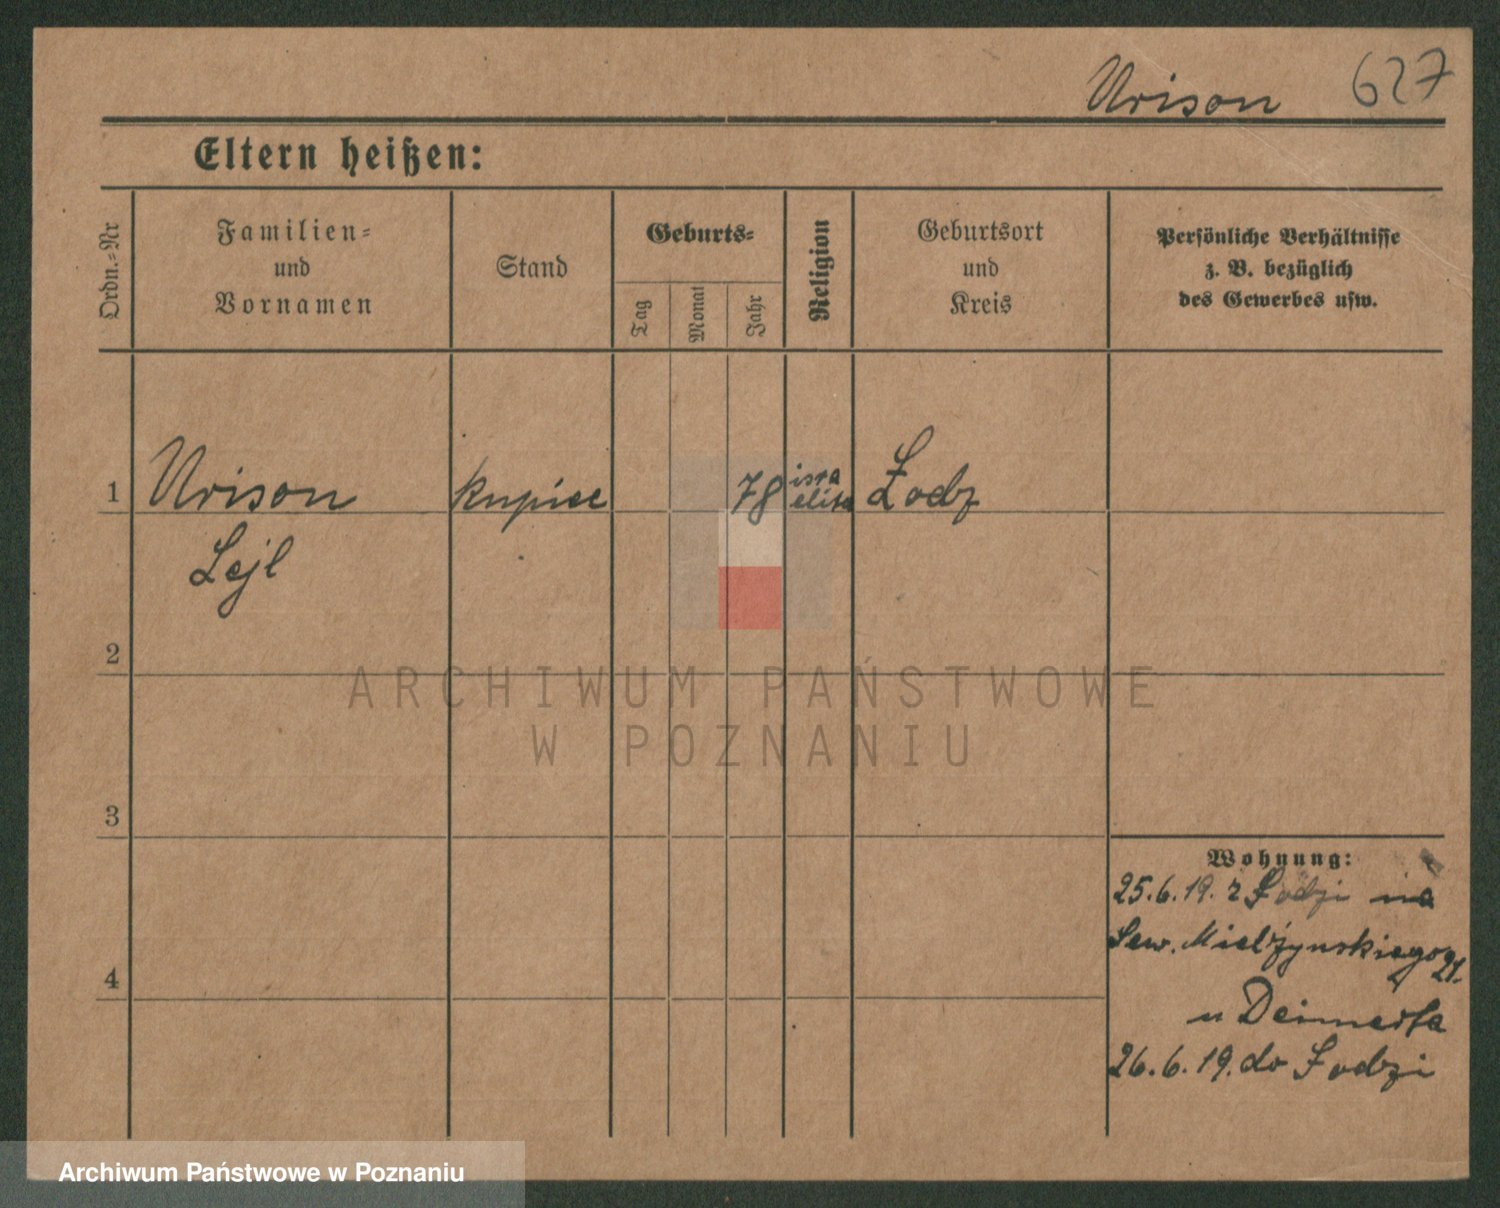 Urison 627
Eltern heißen:
Ordn.=Nr
Familien=
und
Vornamen
Stand
Geburts=
Tag
Monat
Jahr
Religion
Geburtsort
und
Kreis
Persönliche Verhältnisse
z. B. bezüglich
des Gewerbes usw.
1 Urison kupiec 78 isra Łodz
elita
Lejl
2
ARCHIWUM PAŃSTWOWE
W POZNANIU
3
Wohnung:
25.6.19. z Łodzi na
Sew. Mielżynskiego 21.
4
u Deimerta
26.6.19. do Łodzi
Archiwum Państwowe w Poznaniu